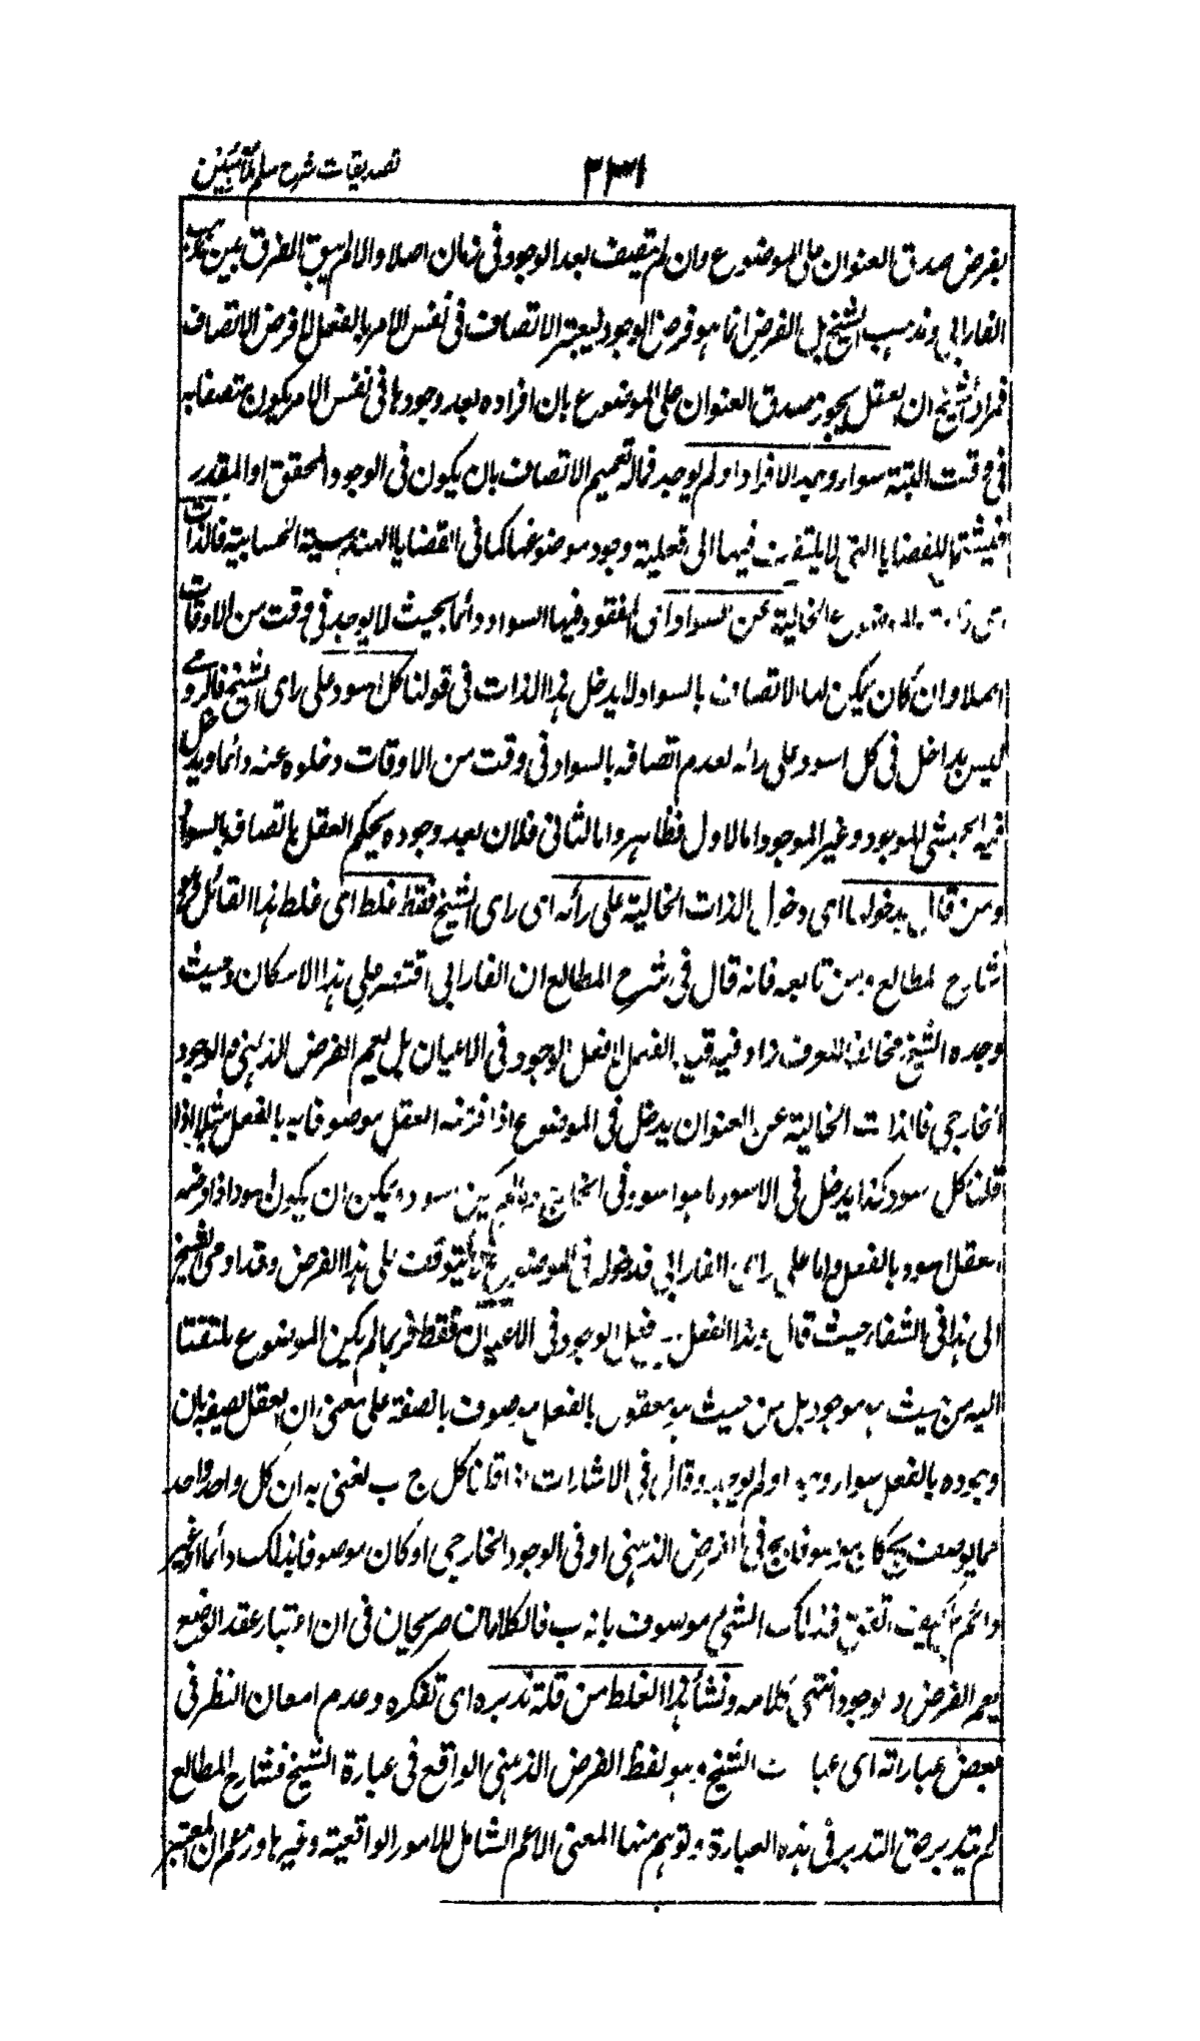 تصدیقات شرح سلم ملا مبین
٣٣١
بفرض صدق العنوان على الموضوع وان لم يتصف بعد الوجود فى زمان اصلا والا لم يبق الفرق بين مذهب
الفارابى ومذهب الشيخ بل الفرض انما هو فرض الوجود ليعتبر الاتصاف فى نفس الامر بالفعل لا فرض الاتصاف
فمراد الشيخ ان العقل يجوز صدق العنوان على الموضوع بان افراده بعد وجودها فى نفس الامر يكون متصفا به
فى وقت البتة سواء وجد الافراد او لم يوجد فمآله تعميم الاتصاف بان يكون فى الوجود المحقق او المقدر
للقضايا التى لا يلتفت فيها الى فعلية وجود موضوعها كما فى القضايا الهندسية الحسابية فالذات
الخالية عن السواد اى المفقود فيها السواد دائما بحيث لا يوجد فى وقت من الاوقات
اصلا وان كان يمكن لها الاتصاف بالسواد لا يدخل هذا الذات فى قولنا كل اسود على راى الشيخ فالرومى
ليس بداخل فى كل اسود على رائه لعدم اتصافه بالسواد فى وقت من الاوقات وخلوه عنه دائما ويدخل
فيه الحبشى الموجود وغير الموجود اما الاول فظاهر واما الثانى فلان بعد وجوده يحكم العقل باتصافه بالسواد
ومن قال بدخولها اى دخول الذات الخالية على رأئه اى راى الشيخ فقط غلط اى غلط هذا القائل
شارح المطالع ومن تابعه فانه قال فى شرح المطالع ان الفارابى اقتصر على هذا الامكان وحيث
وجده الشيخ مخالفا للعرف زاد فيه قيد الفعل لا فعل الوجود فى الاعيان بل ليعم الفرض الذهنى والوجود
الخارجى فالذات الخالية عن العنوان يدخل فى الموضوع اذا فرضه العقل موصوفا به بالفعل مثلا اذا
قلنا كل اسود كذا يدخل فى الاسود ما هو اسود فى الخارج وما لم يكن اسود ويمكن ان يكون اسود اذا فرضه
العقل اسود بالفعل واما على راى الفارابى فدخوله فى الموضوع لا يتوقف على هذا الفرض وقد اومى الشيخ
الى هذا فى الشفاء حيث قال وهذا الفعل فعل الوجود فى الاعيان فقط فربما لم يكن الموضوع ملتفتا
اليه من حيث هو موجود بل من حيث هو معقول بالفعل موصوف بالصفة على معنى ان العقل يصفه بان
وجوده بالفعل سواء وجد او لم يوجد وقال فى الاشارات اذا قلنا كل ج ب نعنى به ان كل واحد واحد
مما يوصف بج كان موصوفا بج فى الفرض الذهنى او فى الوجود الخارجى او كان موصوفا بذلك دائما او غير
دائم كيف اتفق فذلك الشئ موصوف بانه ب فالكلامان صريحان فى ان اعتبار عقد الوضع
يعم الفرض والوجود انتهى كلامه ونشأ هذا الغلط من قلة تدبره اى تفكره وعدم امعان النظر فى
بعض عباراته اى عبارات الشيخ وهو لفظ الفرض الذهنى الواقع فى عبارة الشيخ فشارح المطالع
لم يتدبر حق التدبر فى هذه العبارة وتوهم منها المعنى الاعم الشامل للامور الواقعية وغيرها وزعم ان المعتبر